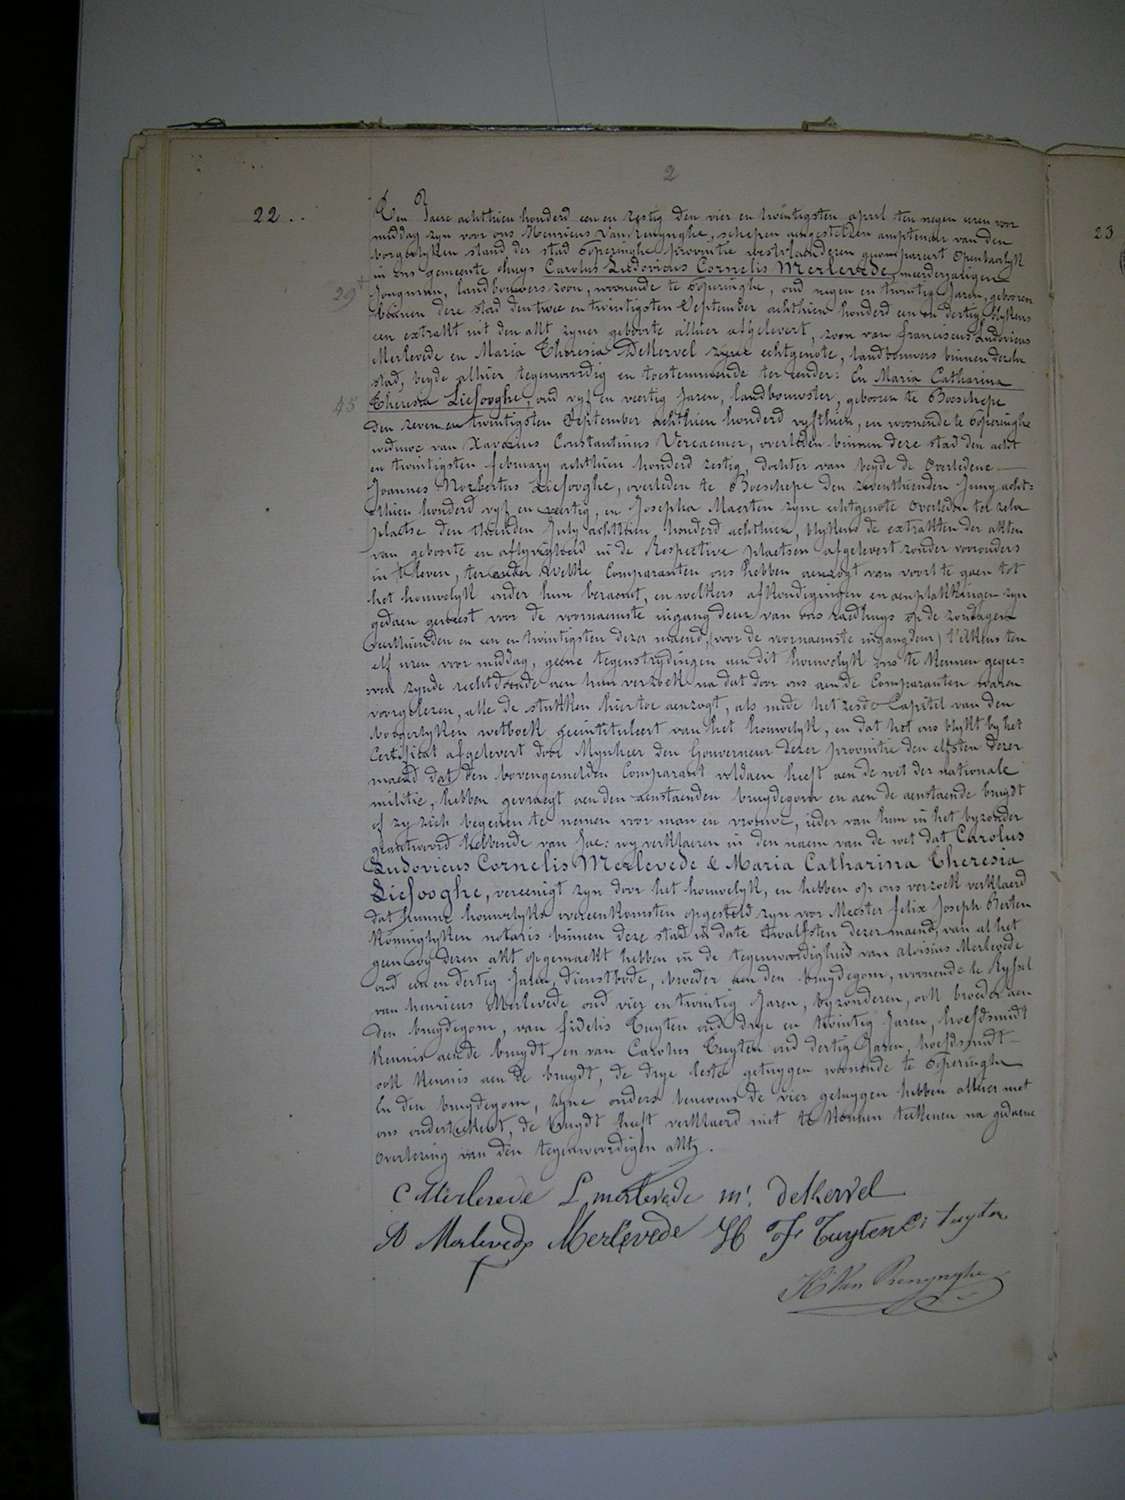 2
22..
Den Jaere achthien honderd een en zestig den vier en twintigsten april ten negen uren voor
middag zyn voor ons Henricus Van Renynghe, schepen aengestelden amptenaer van den
borgerlyken stand der stad Poperinghe provintie westvlaenderen gecompareert openbaerlyk
in ons gemeente huys Carolus Ludovicus Cornelis Merlevede, meerderjarigen
29
Jongman, landbouwers zoon, woonende te Poperinghe, oud negen en twintig Jaren, geboren
binnen deze stad den twee en twintigsten September achthien honderd een en dertig blykens
een extrakt uit den akt zyner geboorte alhier afgelevert, zoon van franciscus Ludovicus
Merlevede en Maria Theresia DeKervel zyne echtgenote, landbouwers binnen dezelve
stad, beyde alhier tegenwoordig en toestemmende ter eender: En Maria Catharina
45
Theresia Liefooghe, oud vyf en veertig Jaren, landbouwster, geboren te Boeschepe
den zeven en twintigsten September achthien honderd vyfthien, en woonende te Poperinghe
weduwe van Xaverius Constantinus Vercaemer, overleden binnen deze stad den acht
en twintigsten february achthien honderd zestig, dochter van beyde de overledene
Joannes Norbertus Liefooghe, overleden te Boeschepe den zeventhienden Juny acht-
thien honderd vyf en veertig, en Josepha Maerten zyne echtgenote overleden ter zelve
plaetse den thienden July achthien honderd achthien, blykens de extrakten der akten
van geboorte en aflyvigheid in de Respective plaetsen afgelevert zonder voorouders
in t'leven, ter ander Welke Comparanten ons hebben aenzogt van voort te gaen tot
het houwelyk onder hun beraemt, en welkers afkondigingen en aenplakkingen zyn
gedaen geweest voor de voornaemste ingang deur van ons raedhuys op de zondagen
veerthienden en een en twintigsten dezer maend, (voor de voornaemste ingangdeur) t'elkens ten
elf uren voor middag, geene tegenstrydingen aen dit houwelyk ons te kennen gegee-
ven zynde rechtdoende aen hun verzoek na dat door ons aen de Comparanten waren
voorgelezen, alle de stukken hiertoe aenzogt, als mede het zesde Capitel van den
borgerlyken wetboek geintituleert van het houwelyk, en dat het ons blykt by het
Certificat afgelevert door Mynheer den Gouverneur dezer provintie den elfsten dezer
maend dat den bovengemelden Comparant voldaen heeft aen de wet der nationale
militie, hebben gevraegt aen den aenstaenden bruydegom en aen de aenstaende bruydt
of zy zich begeiren te nemen voor man en vrouwe, ieder van hun in het byzonder
geantwoord hebbende van Jae: wy verklaeren in den naem van de wet dat Carolus
Ludovicus Cornelis Merlevede & Maria Catharina Theresia
Liefooghe, vereenigt zyn door het houwelyk, en hebben op ons verzoek verklaerd
dat hunne houwelyks overeenkomsten opgesteld zyn voor Meester felix Joseph Berten
Koninglyken notaris binnen deze stad in date twalfsten dezer maend, van al het
geen wy dezen akt opgemaekt hebben in de tegenwoordigheid van aloisius Merlevede
oud een en dertig Jaren, dienstbode, broeder aen den bruydegom, woonende te Ryssel
van henricus Merlevede oud vier en twintig Jaren, byzonderen, ook broeder aen
den bruydegom, van fidelis Tuyten oud drye en twintig Jaren, hoefdsmidt
Kennis aen de bruydt, en van Carolus Tuyten oud dertig Jaren, hoefdsmidt
ook Kennis aen de bruydt, de drye leste getuygen woonende te Poperinghe
En den bruydegom, zyne ouders benevens de vier getuygen hebben alhier met
ons onderteekent, de bruydt heeft verklaerd niet te konnen teekenen na gedaene
overlezing van den tegenwoordigen akte.
C Merlevede L merlevede m. deKervel
A Merlevede Merlevede H F Tuyten C: tuyten
H Van Renynghe
23